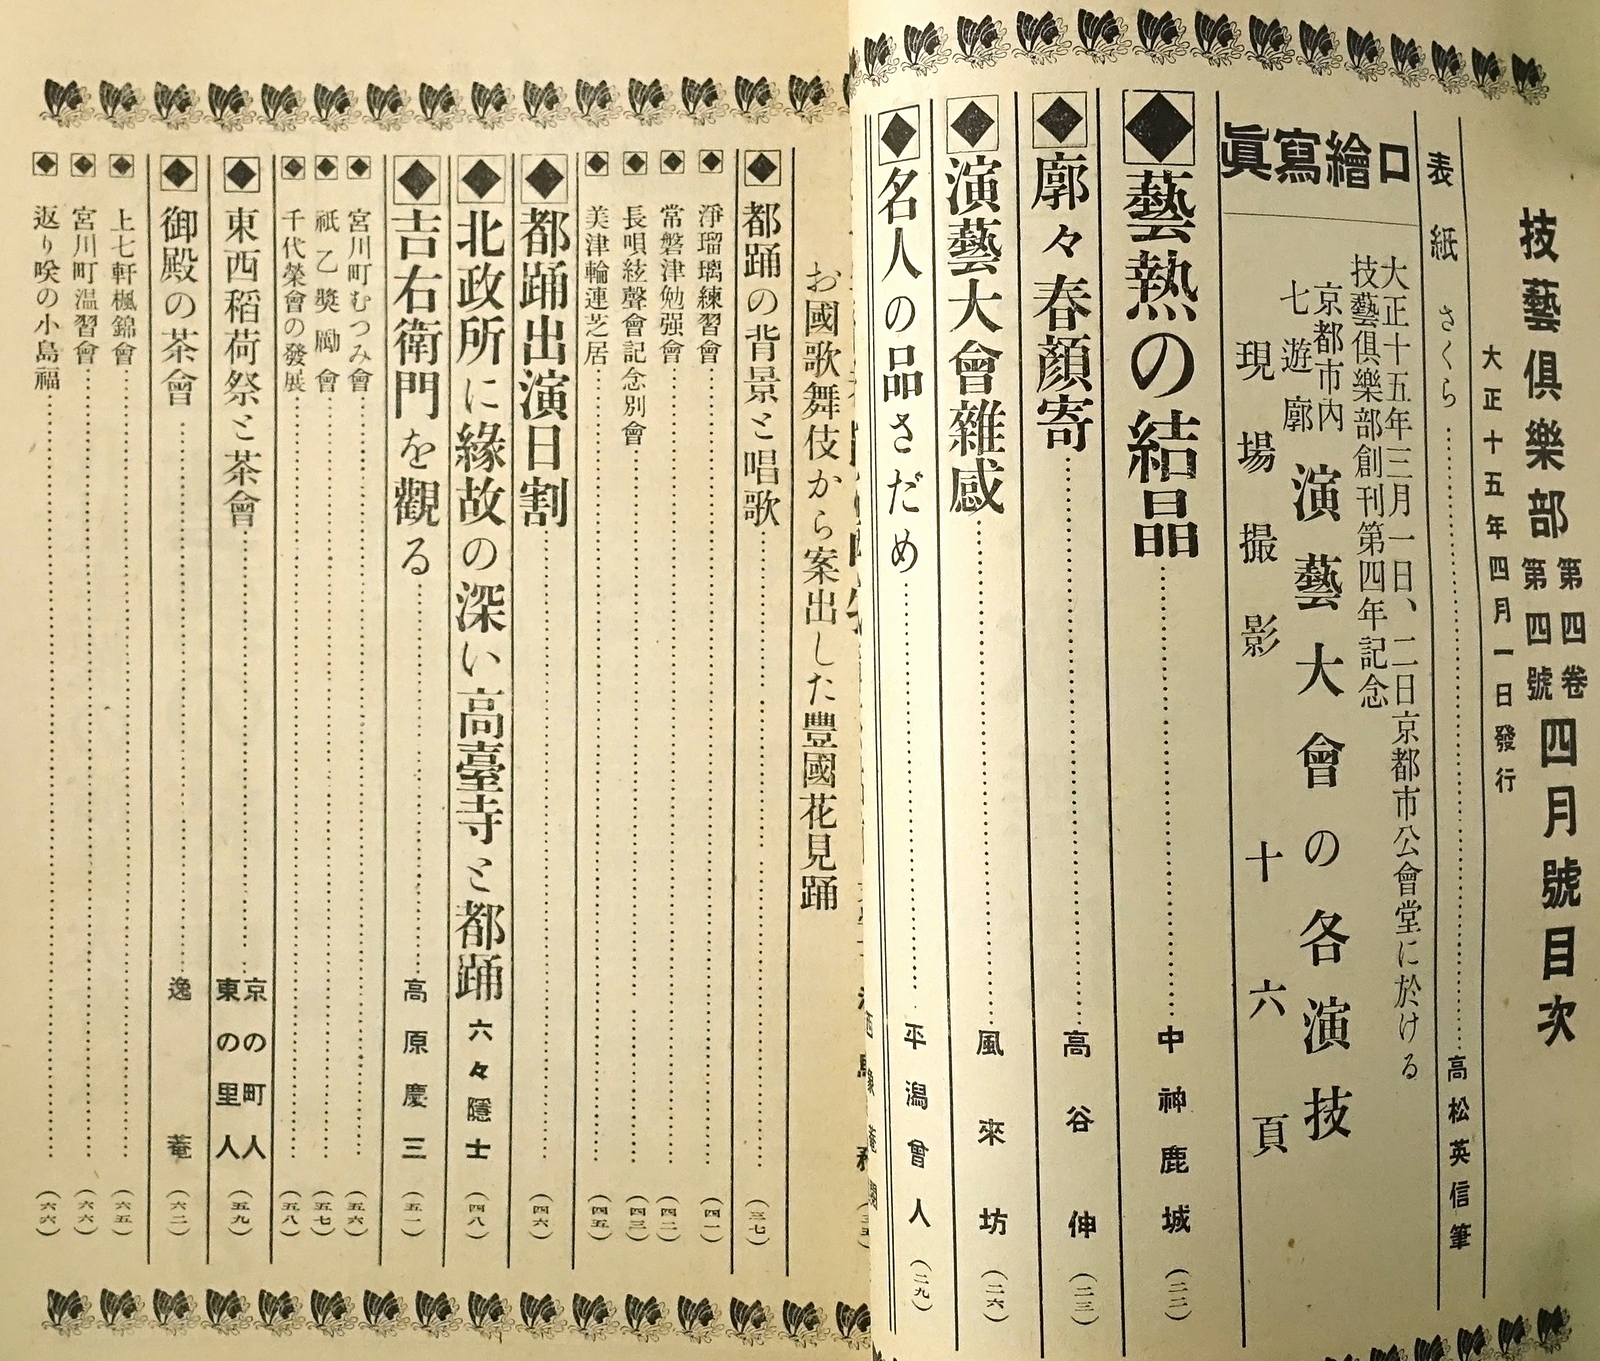 技藝俱樂部 第四卷 第四號 四月號目次
大正十五年四月一日發行
表紙 さくら 高松英信筆
口繪寫眞
大正十五年三月一日、二日京都市公會堂に於ける
技藝俱樂部創刊第四年記念
京都市內
七遊廓
演藝大會の各演技
現場撮影十六頁
藝熱の結晶 中神鹿城 (二二)
廓々春顏寄 高谷伸 (二三)
演藝大會雜感 風來坊 (二六)
名人の品さだめ 平潟曾人 (二九)
お國歌舞伎から案出した豐國花見踊
都踊の背景と唱歌 (三七)
淨瑠璃練習會 (四一)
常磐津勉强會 (四二)
長唄絃聲會記念別會 (四三)
美津輪連芝居 (四五)
都踊出演日割 (四六)
北政所に緣故の深い高臺寺と都踊 六々隱士 (四八)
吉右衛門を觀る 高原慶三 (五一)
宮川町むつみ會 (五六)
祇乙獎勵會 (五七)
千代榮會の發展 (五八)
東西稻荷祭と茶會 京の町人 東の里人 (五九)
御殿の茶會 逸菴 (六二)
上七軒楓錦會 (六五)
宮川町温習會 (六六)
返り咲の小島福 (六六)